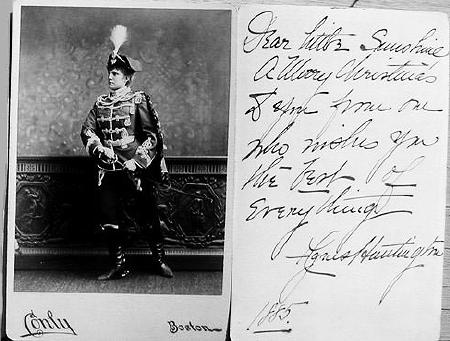 Conly
Boston
Dear little Sunshine
A Merry Christmas
Sent from one
who wishes you
the best of
Everything
Agnes Huntington
1885.